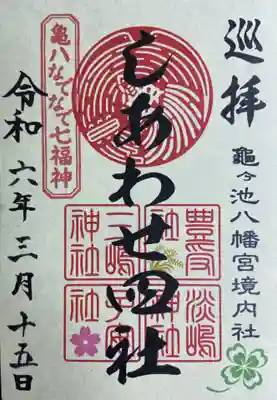 巡拝
龜ヶ池八幡宮境内社
しあわせ四社
亀八なでなで七福神
令和六年三月十五日
淡嶋
神社
三嶋
神社